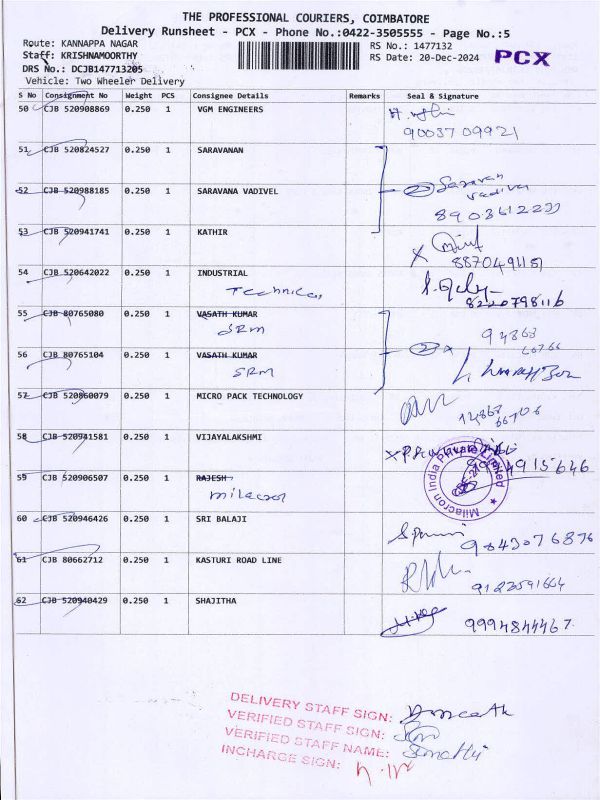 THE PROFESSIONAL COURIERS, COIMBATORE
Delivery Runsheet - PCX - Phone No.:0422-3505555 - Page No.:5
Route: KANNAPPA NAGAR
RS No.: 1477132
Staff: KRISHNAMOORTHY
RS Date: 20-Dec-2024
PCX
DRS No.: DCJB147713205
Vehicle: Two Wheeler Delivery
S No Consignment No Weight PCS Consignee Details Remarks Seal & Signature
50 CJB 520908869 0.250 1 VGM ENGINEERS
9003709921
51 CJB 520824527 0.250 1 SARAVANAN
52 CJB 520988185 0.250 1 SARAVANA VADIVEL
2 Saravan
vadivel
53 CJB 520941741 0.250 1 KATHIR
54 CJB 520642022 0.250 1 INDUSTRIAL
Technical
8220798116
55 CJB 80765080 0.250 1 VASATH KUMAR
SRM
56 CJB 80765104 0.250 1 VASATH KUMAR
SRM
2 x
57 CJB 520860079 0.250 1 MICRO PACK TECHNOLOGY
58 CJB 520941581 0.250 1 VIJAYALAKSHMI
59 CJB 520906507 0.250 1 RAJESH
milacron
Milacron India Private Limited
60 CJB 520946426 0.250 1 SRI BALAJI
9843076876
61 CJB 80662712 0.250 1 KASTURI ROAD LINE
62 CJB 520940429 0.250 1 SHAJITHA
9994844467
DELIVERY STAFF SIGN:
VERIFIED STAFF SIGN:
VERIFIED STAFF NAME:
INCHARGE SIGN: